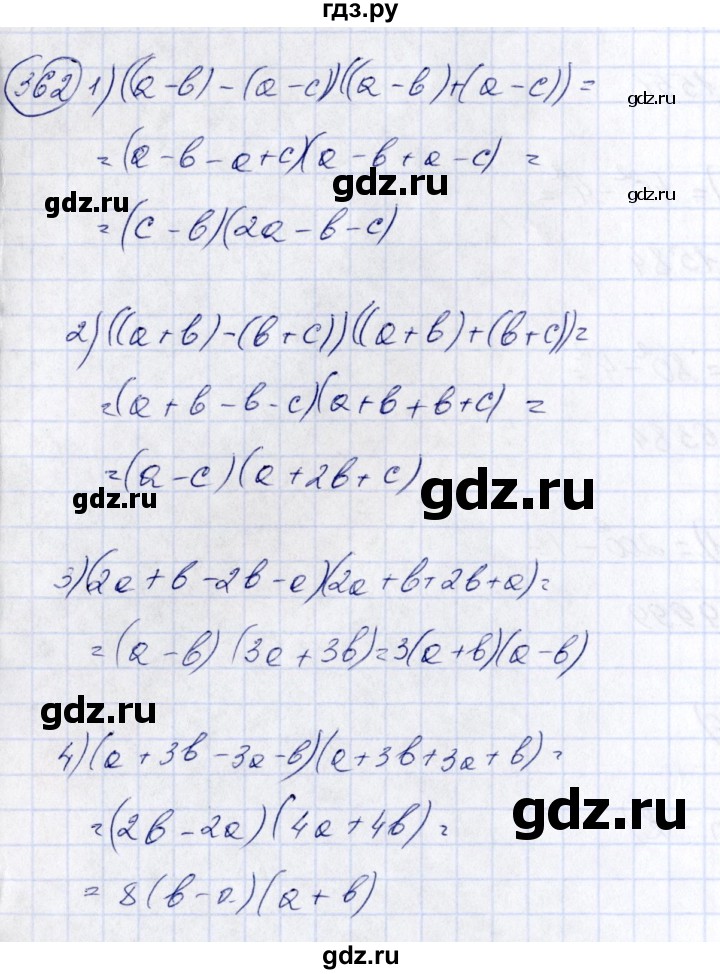 гдз.ру
362 1) ((a-в) - (a-c))((a-в)+(a-c)) =
gdz.ru
= (a-в-a+c)(a-в+a-c) =
gdz.ru
gdz.ru
gdz.ru
= (c-в)(2a-в-c)
2) ((a+в)-(в+c))((a+в)+(в+c))=
=(a+в-в-c)(a+в+в+c) =
=(a-c)(a+2в+c)
gdz.ru
gdz.ru
3)(2a+в-2в-a)(2a+в+2в+a)=
=(a-в)(3a+3в)=3(a+в)(a-в)
gdz.ru
4)(a+3в-3a-в)(a+3в+3a+в)=
gdz.ru
=(2в-2a)(4a+4в)=
= 8(в-a)(a+в)
gdz.ru